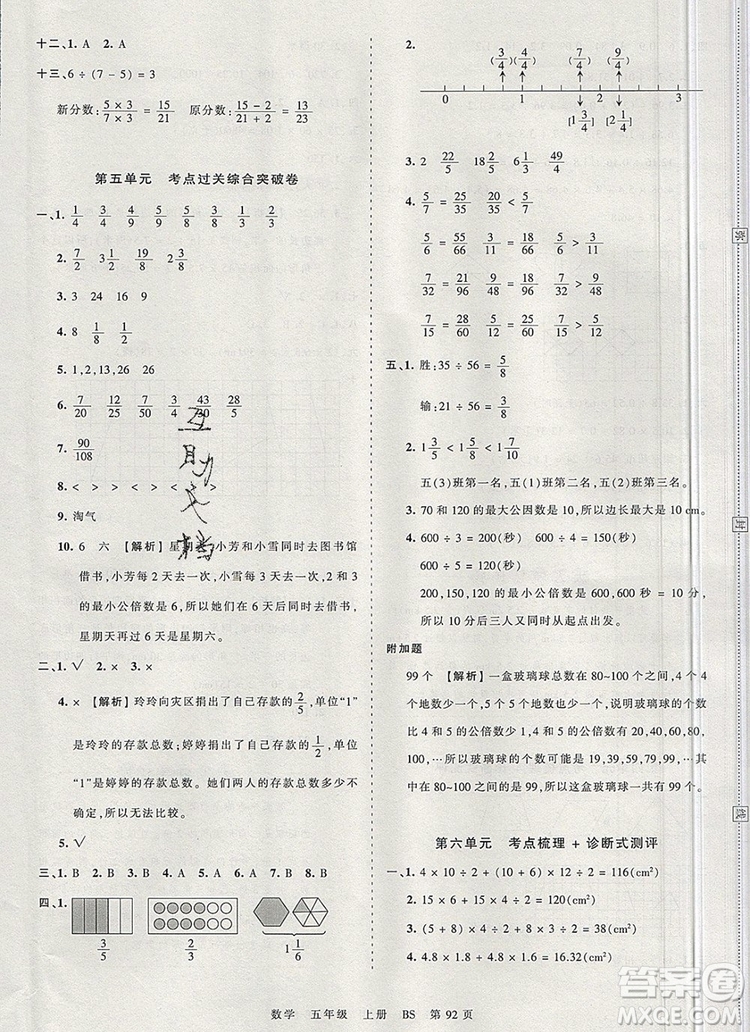 十二、1. A　2. A
十三、6 ÷ (7 - 5) = 3
新分数：5 × 3/7 × 3 = 15/21　原分数：15 - 2/21 + 2 = 13/23
第五单元　考点过关综合突破卷
一、1. 1/4　3/4　4/9　5/9　5/8　3/8　1/3　2/3
2. 7/2　3 1/2　15/8　2 3/8
3. 3　24　16　15
4. 8　1/8　1 1/2
5. 1,2,13,26　26
6. 7/20　12/25　1/8　3/4　43/30　28/5
7. 90/108
8. <　>　<　>　<　>
9. 淘气
10. 6　六　【解析】星期 小芳和小雪同时去图书馆
借书，小芳每 2 天去一次，小雪每 3 天去一次，2 和 3
的最小公倍数是 6，所以她们在 6 天后同时去借书，
星期天再过 6 天是星期六。
二、1. √　2. ×　3. ×
4. ×　【解析】玲玲向灾区捐出了自己存款的 2/5，单位“1”
是玲玲的存款总数；婷婷捐出了自己存款的 1/2，单位
“1”是婷婷的存款总数。她们两人的存款总数多少不
确定，所以无法比较。
5. √
三、1. B　2. B　3. A　4. A　5. B
四、1.
3/5　2/3　1 1/6
2.
(3/4) (4/4)　7/4　9/4
0　1　2　3
[1 3/4] [2 1/4]
3. 2　22/5　18/5　4 1/5
4. 5/7 = 25/35　20/35 < 5/7　4/7 < 5/7
5/6 = 55/66　18/66　5/6 > 3/11
7/32 = 21/96　18/96　7/32 > 3/16
7/15 = 28/60　25/60　7/15 > 5/12
五、1. 胜：35 ÷ 56 = 5/8
输：21 ÷ 56 = 3/8
2. 1 3/5 < 1 5/8 < 1 7/10
五(3)班第一名，五(1)班第二名，五(2)班第三名。
3. 70 和 120 的最大公因数是 10，所以边长最大是 10 cm。
4. 600 ÷ 3 = 200(秒)　600 ÷ 4 = 150(秒)
600 ÷ 5 = 120(秒)
200,150,120 的最小公倍数是 600,600 秒 = 10 分
所以10 分后三人又同时从起点出发。
附加题
99 个　【解析】一盒玻璃球总数在 80~100 个之间，4
个地数少一个，5 个地数也少一个，说明玻璃球的个数
比 4 和 5 的公倍数少 1,4 和 5 的公倍数有 20,40,60,80，
100,…所以玻璃球的个数可能是 19,39,59,79,99，
…又知总数在 80~100 个之间，所以这盒玻璃球一共有 99 个。
第六单元　考点梳理 + 诊断式测评
一、1. 4 × 10 ÷ 2 + (10 + 6) × 12 ÷ 2 = 116(cm²)
2. 15 × 4 ÷ 2 + 15 × 8 = 150(cm²)
3. (5 + 8) × 4 ÷ 2 + 8 × 8 = 90(cm²)
4. 4.8 × 1 + 4.8 × 2.4 = 16.32(cm²)
弥
封
线
互
助
文
档
答案
数学　五年级　上册　BS　第 92 页